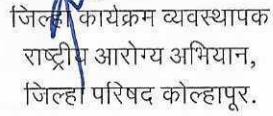 जिल्हा कार्यक्रम व्यवस्थापक
राष्ट्रीय आरोग्य अभियान,
जिल्हा परिषद कोल्हापूर.